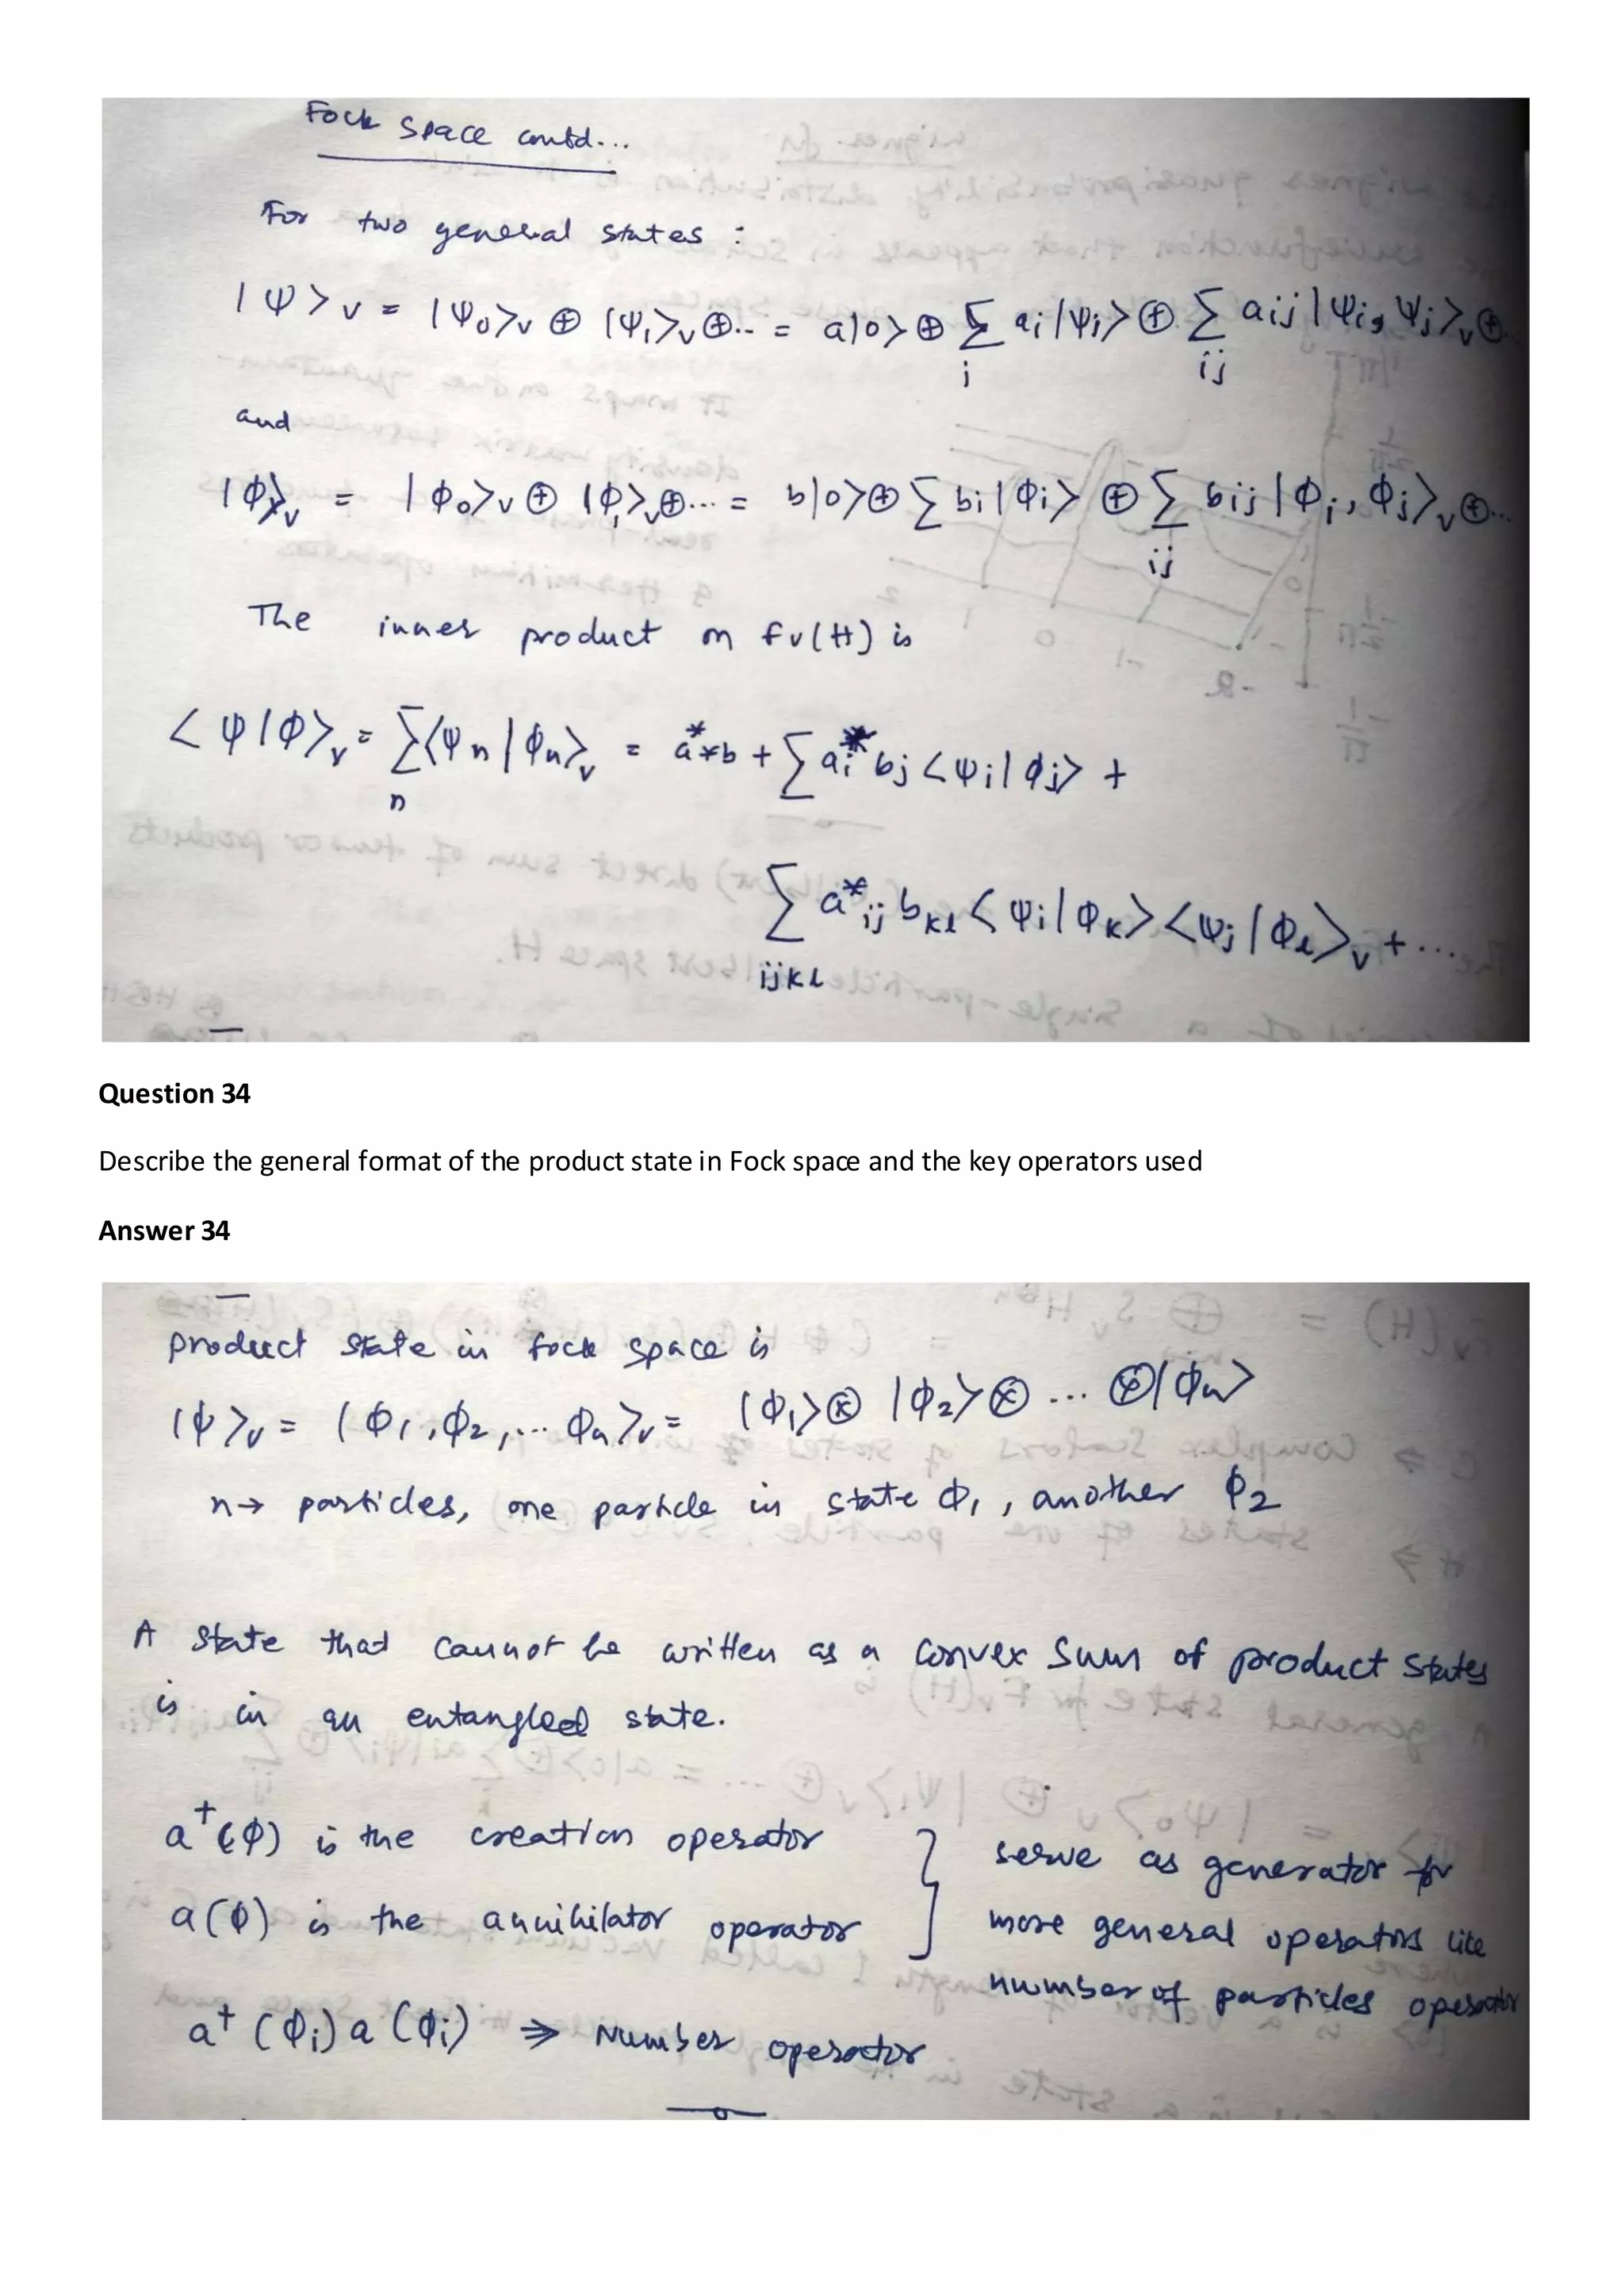 Fock space contd...
For two general states :
|ψ>ν = |ψ₀>ν ⊕ |ψ₁>ν ⊕.. = a|0> ⊕ Σ aᵢ|ψᵢ> ⊕ Σ aij|ψi, ψj>ν ⊕..
i ij
and
|Φ>ν = |Φ₀>ν ⊕ |Φ₁>ν ⊕... = b|0> ⊕ Σ bi|Φi> ⊕ Σ bij|Φi, Φj>ν ⊕...
ij
The inner product on Fν(H) is
<ψ|Φ>ν = Σ<ψn|Φn>ν = a* * b + Σ ai* bj <ψi|Φj> +
n
Σ a*ij bkl <ψi|Φk> <ψj|Φl>ν + ...
ijkl
Question 34
Describe the general format of the product state in Fock space and the key operators used
Answer 34
product state in fock space is
|ψ>ν = |Φ1, Φ2, ... Φn>ν = |Φ1> ⊗ |Φ2> ⊗ ... ⊗ |Φn>
n → particles, one particle in state Φ1, another Φ2
A state that cannot be written as a convex sum of product states
is in an entangled state.
a†(Φ) is the creation operator } serve as generator for
a(Φ) is the annihilator operator more general operators like
number of particles operator
a†(Φi) a(Φi) ⇒ Number operator